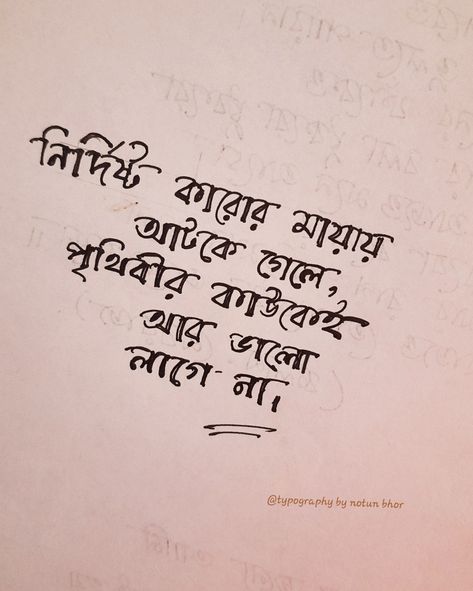 নির্দিষ্ট কারোর মায়ায়
আটকে গেলে,
পৃথিবীর কাউকেই
আর ভালো
লাগে না।
@typography by notun bhor